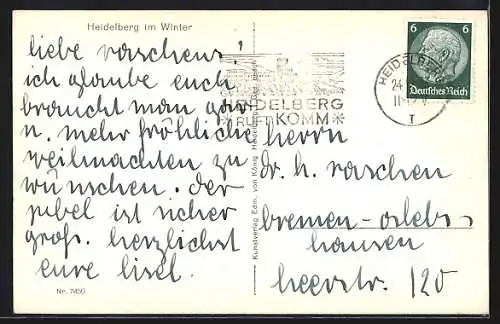 Heidelberg im Winter
liebe raschens!
ich glaube euch
braucht man gar
n. mehr fröhliche
weihnachten zu
wünschen. der
jubel ist sicher
groß. herzlichst
eure lisel.
Nr. 7450
Kunstverlag Edm. von König, Heidelberg
HEIDELBERG
*RUFT KOMM*
HEIDELBERG
24
T
6 6
Deutsches Reich
herrn
dr. h. raschen
bremen - osleb-
hausen
heerstr. 120